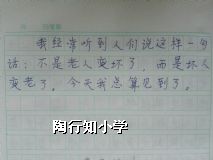 我经常听到人们说这样一句
话：不是老人变坏了，而是坏人
变老了，今天我总算见到了。
陶行知小学